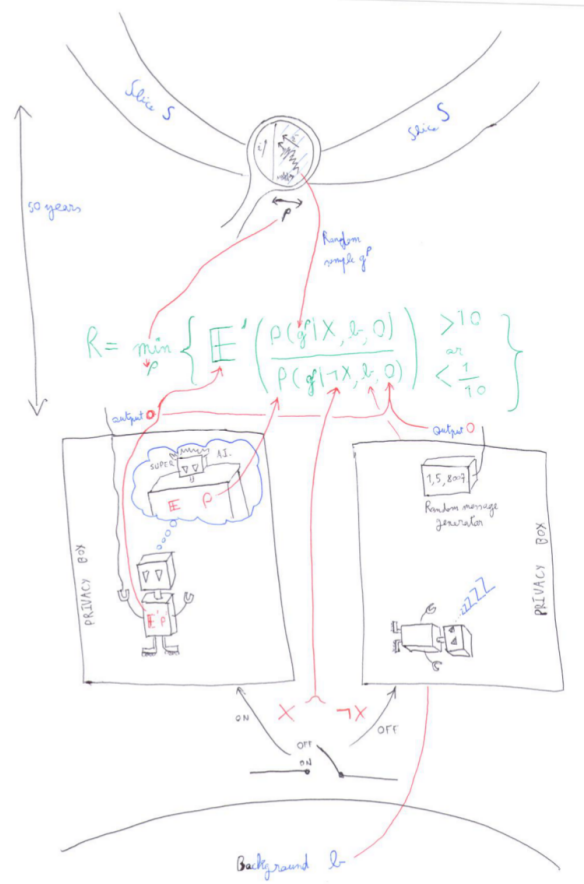 Slice S
Slice S
g'
50 years
ρ
Random
sample g^ρ
R = min_ρ { E' ( P(g^ρ|X, b, O) / P(g^ρ|¬X, b, O) ) >10 or < 1/10 }
output O
output O
SUPER A.I.
E P
E' P
PRIVACY BOX
1, 5, 8007
Random message
generator
ZZZZ
PRIVACY BOX
X ¬X
ON
OFF
OFF
ON
Background b